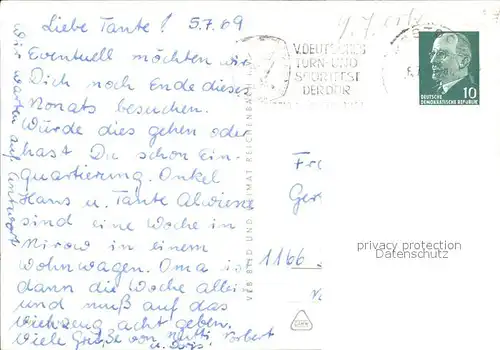 Liebe Tante! 5.7.69
Eventuell möchten wir
Dich noch Ende dieses
Monats besuchen.
Würde dies gehen oder
hast Du schon Ein-
quartierung. Onkel
Hans u. Tante
sind eine Woche in
Mirow in einem
Wohnwagen. Oma is
dann die Woche allei
und muß auf das
Viehzeug acht geben.
Viele Grüße von Mutti, Norbert
u. Doris.
Wir warten auf Antwort
V. DEUTSCHES
TURN- UND
SPORTFEST
DER DDR
DEUTSCHE
DEMOKRATISCHE REPUBLIK 10
VEB BILD UND HEIMAT REICHENBACH
Fr
Ger
1166
privacy protection
Datenschutz